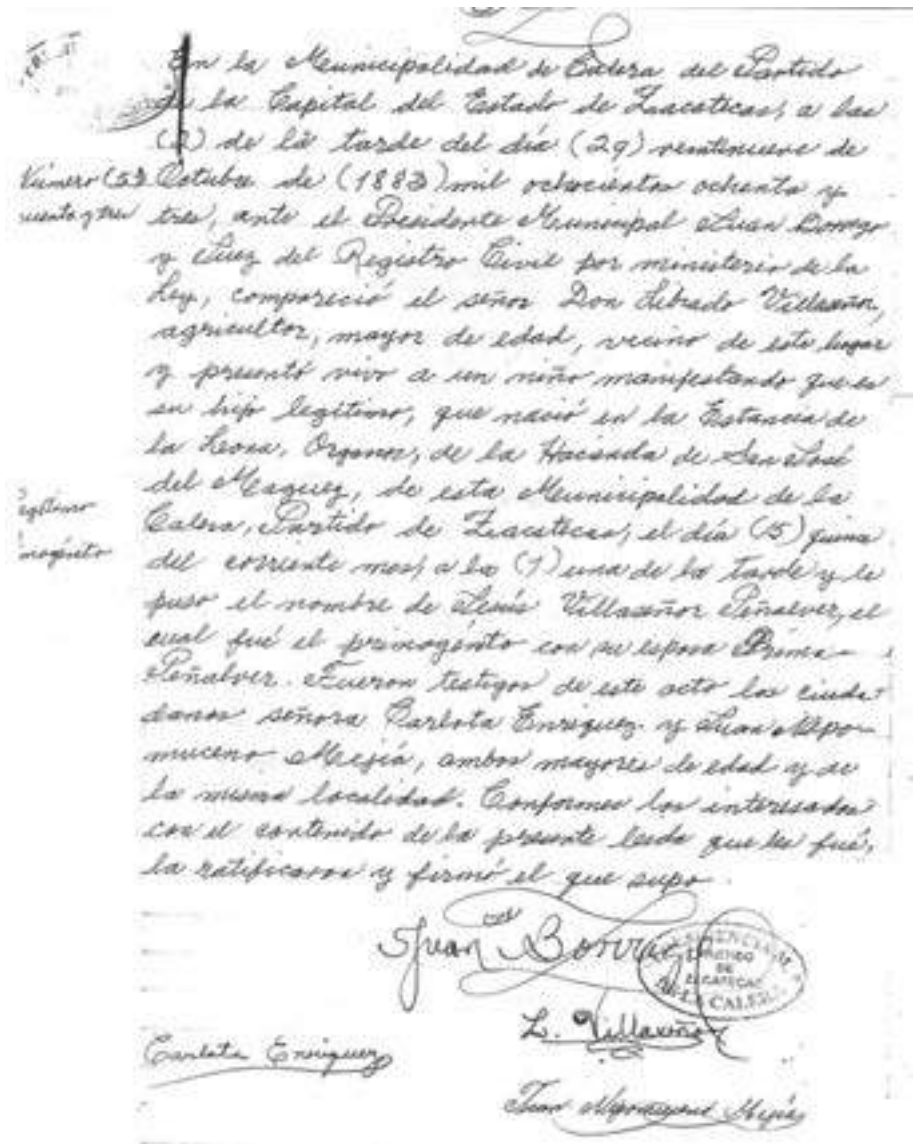 En la Municipalidad de Calera del Partido
de la Capital del Estado de Zacatecas, a las
de la tarde del día (29) veintinueve de
Número (53 Octubre de (1883) mil ochocientos ochenta y
cuenta y tres tres, ante el Presidente Municipal Juan Borrego
y Juez del Registro Civil por ministerio de la
Ley, compareció el señor Don Librado Villaseñor,
agricultor, mayor de edad, vecino de este lugar
y presentó vivo a un niño manifestando que es
su hijo legítimo, que nació en la Estancia de
la Leona, Organos, de la Hacienda de San José
del Maguey, de esta Municipalidad de la
Calera, Partido de Zacatecas, el día (5)
del corriente mes, a la (1) una de la tarde y le
puso el nombre de Jesús Villaseñor Peñalver, el
cual fué el primogénito con su esposa Prima
Peñalver. Fueron testigos de este acto los ciuda-
danos señora Carlota Enriquez y Juan Nepo-
muceno Mejía, ambos mayores de edad y de
la misma localidad. Conformes los interesados
con el contenido de la presente leida que les fué,
la ratificaron y firmó el que supo.
Juan Borrego
ZACATECAS
DE LA CALERA
L. Villaseñor
Carlota Enriquez
Juan Nepomuceno Mejía